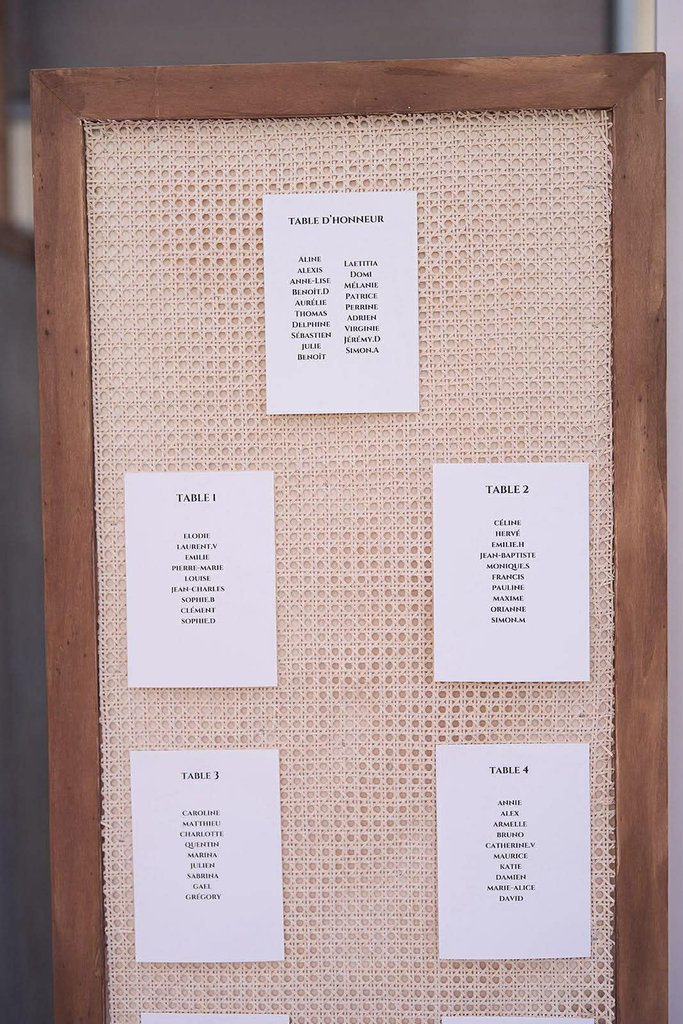 TABLE D'HONNEUR
ALINE
ALEXIS
ANNE-LISE
BENOÎT.D
AURÉLIE
THOMAS
DELPHINE
SÉBASTIEN
JULIE
BENOÎT
LAETITIA
DOMI
MÉLANIE
PATRICE
PERRINE
ADRIEN
VIRGINIE
JÉRÉMY.D
SIMON.A
TABLE 1
ELODIE
LAURENT.V
EMILIE
PIERRE-MARIE
LOUISE
JEAN-CHARLES
SOPHIE.B
CLÉMENT
SOPHIE.D
TABLE 2
CÉLINE
HERVÉ
EMILIE.H
JEAN-BAPTISTE
MONIQUE.S
FRANCIS
PAULINE
MAXIME
ORIANNE
SIMON.M
TABLE 3
CAROLINE
MATTHIEU
CHARLOTTE
QUENTIN
MARINA
JULIEN
SABRINA
GAEL
GRÉGORY
TABLE 4
ANNIE
ALEX
ARMELLE
BRUNO
CATHERINE.V
MAURICE
KATIE
DAMIEN
MARIE-ALICE
DAVID